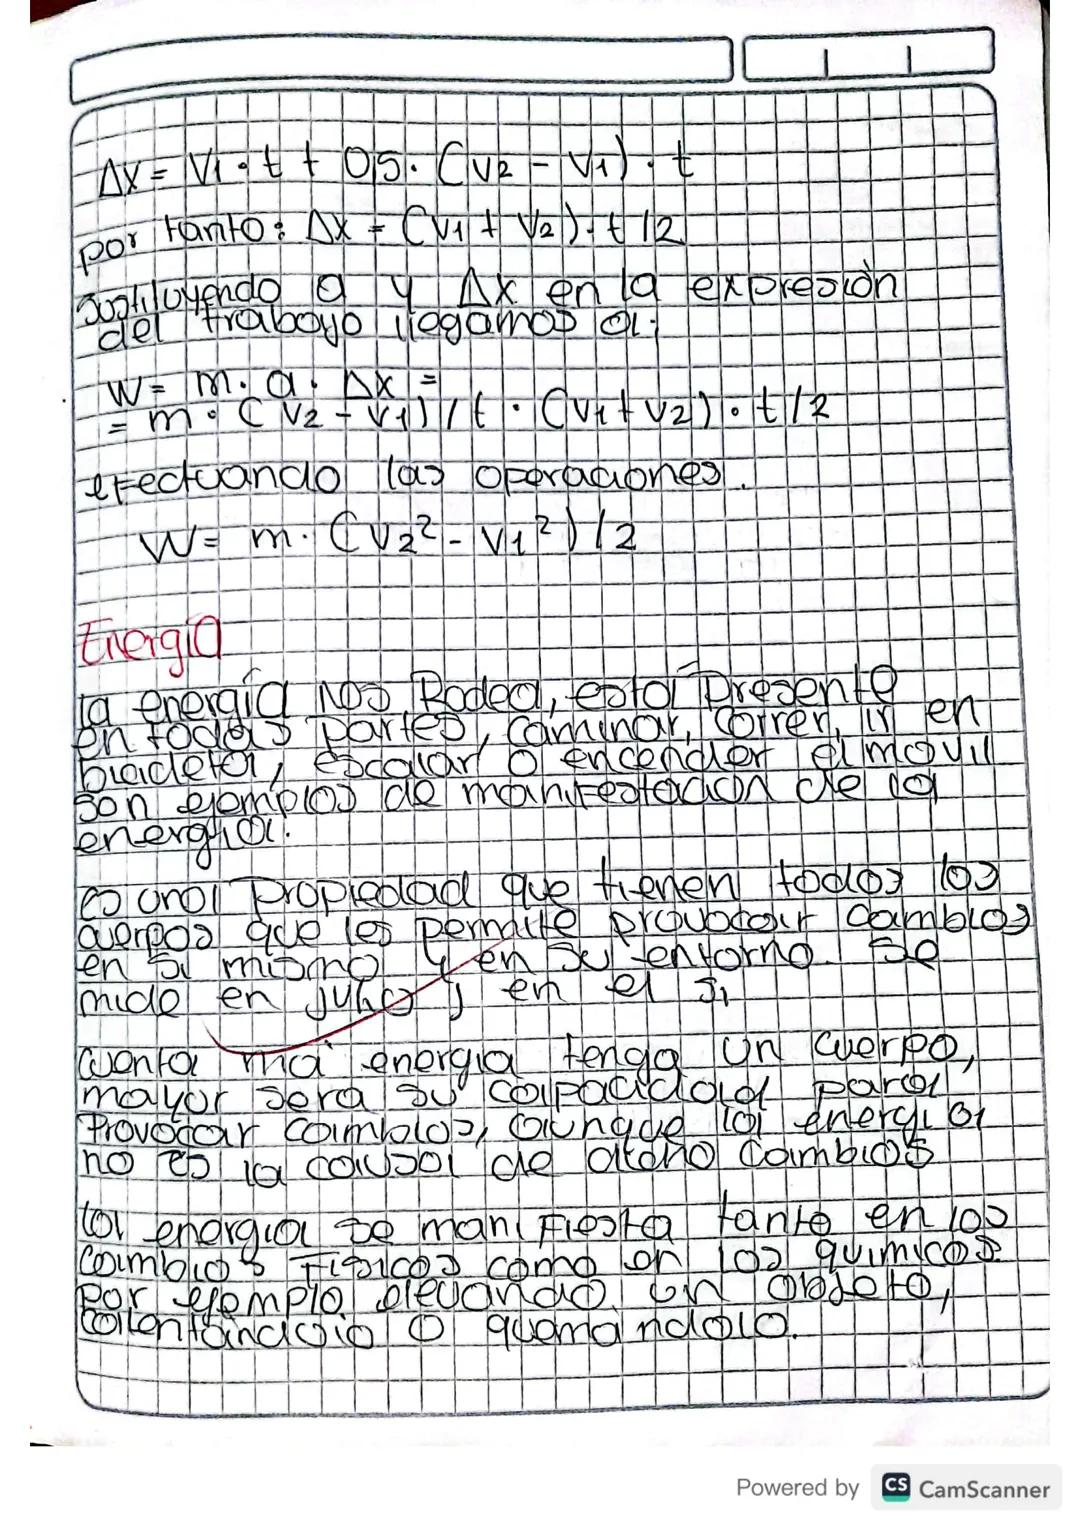 Δx = V1 · t + 0,5 · (v2 - V1) · t
por tanto: Δx = (V1 + V2) · t /2
sustituyendo a y Δx en la expresión
del trabayo llegamos a:
W= m · a · Δx =
= m · (V2 - V1) / t · (V1 + V2) · t /2
efectuando las operaciones.
W= m · (V2² - V1²) /2
Energía
la energía nos Rodea, esta Presente
en todas partes, caminar, correr, ir en
bicicleta, escalar o encender el movil
son ejemplos de manifestación de la
energía.
es una Propiedad que tienen todos los
cuerpos que les permite provocar cambios
en si mismo y en su entorno. Se
mide en julio j en el si
Cuenta ma energia tenga un cuerpo,
mayor sera su capacidad para
Provocar cambios, aunque la energia
no es la causa de dicho cambios
la energia se maniFiesta tanto en los
cambios Fisicos como en los quimicos.
Por ejemplo elevando un objeto,
calentandolo o quemandolo.
Powered by CS CamScanner